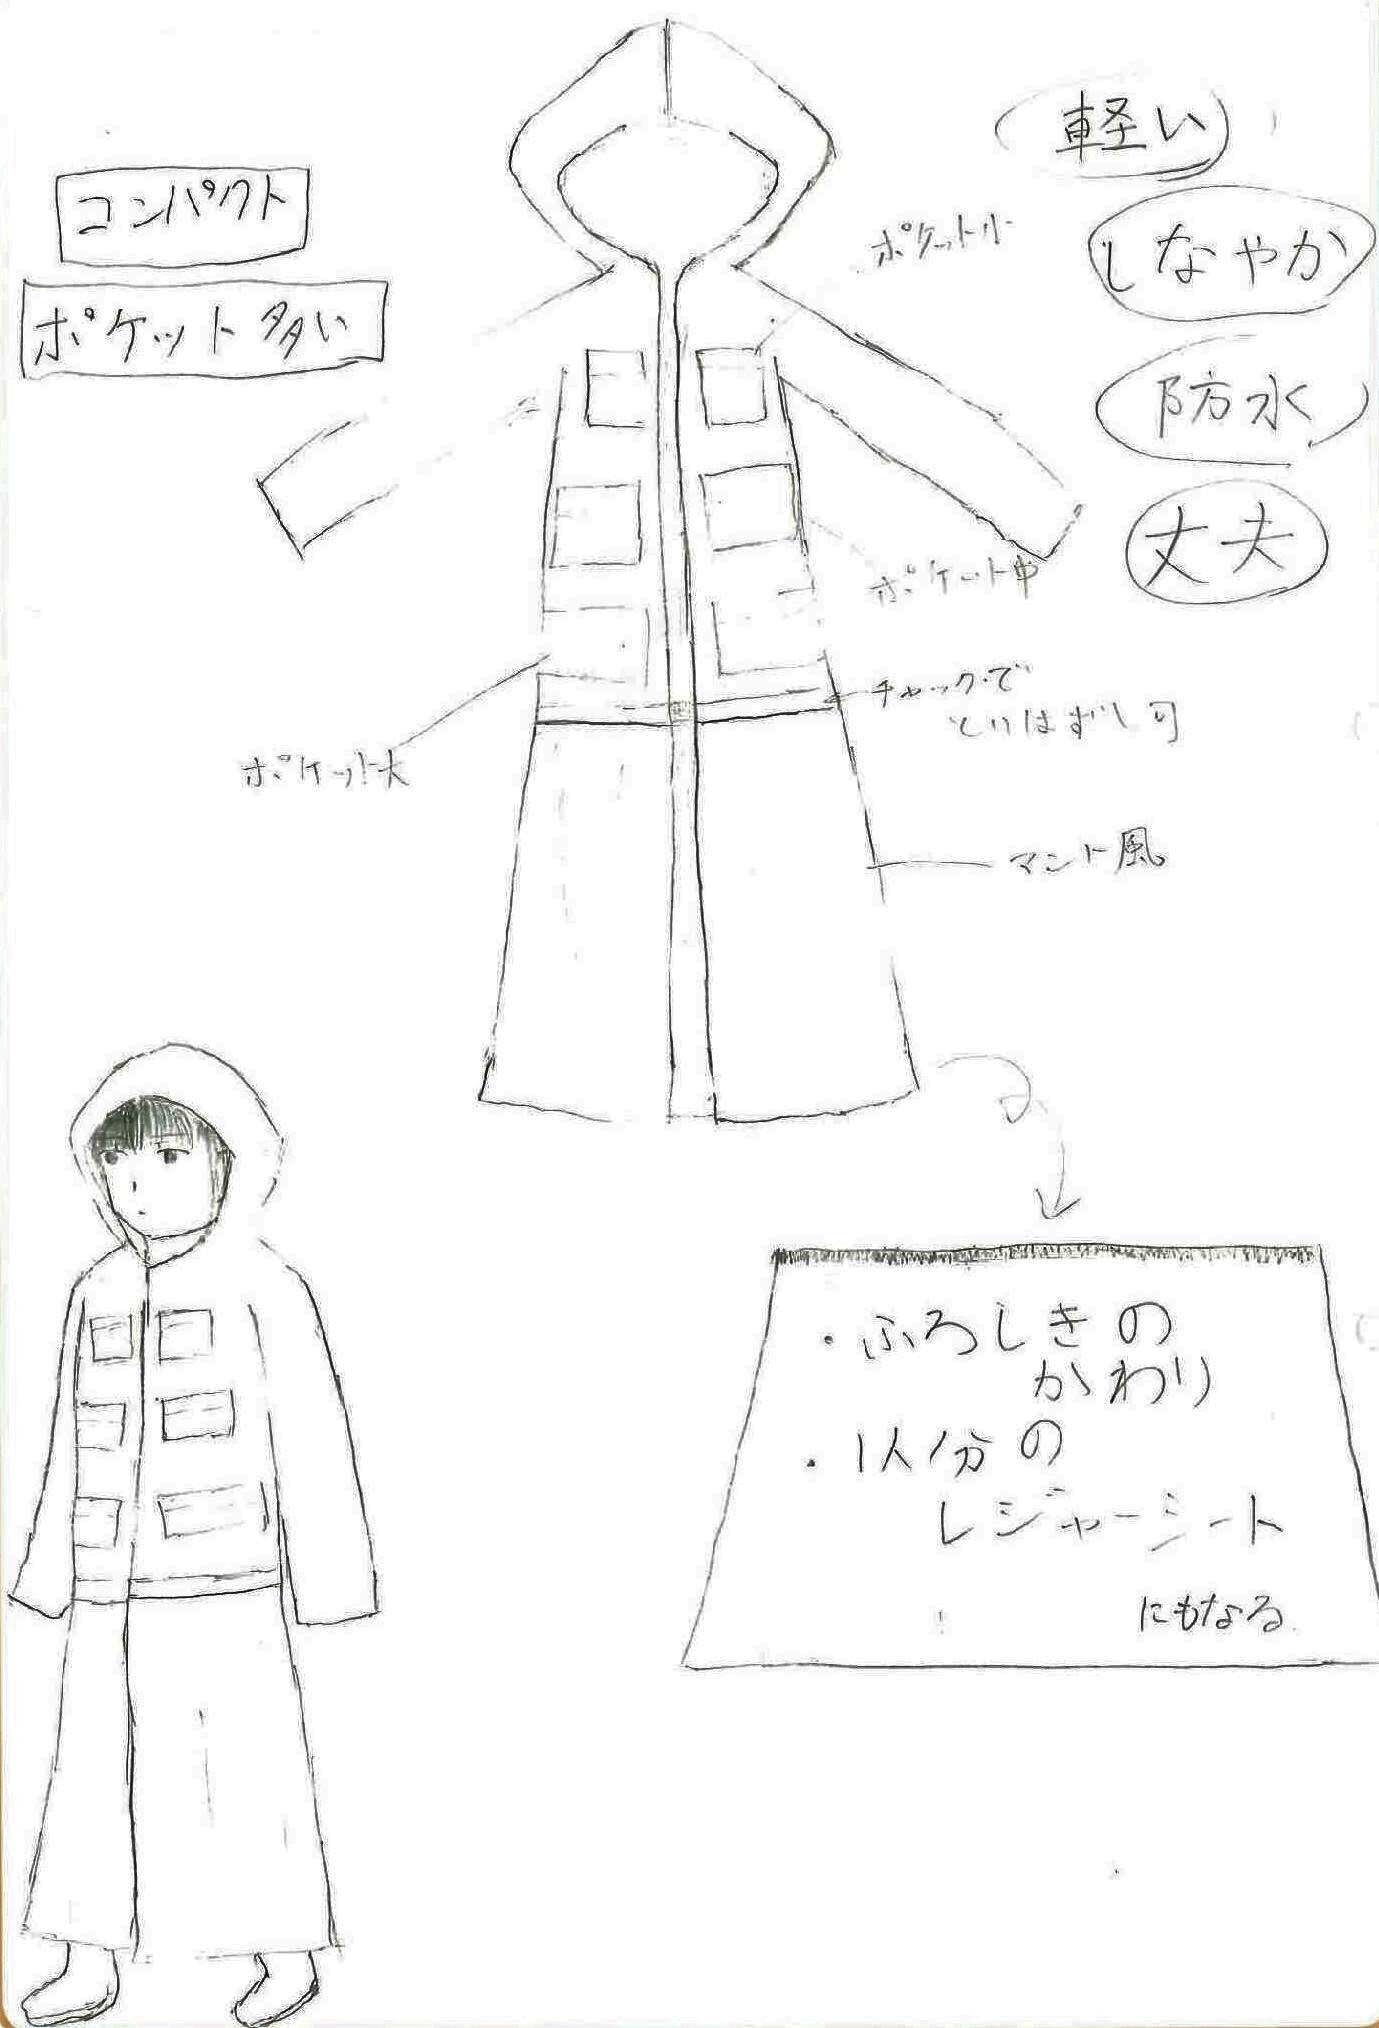 コンパクト
ポケット多い
軽い
しなやか
防水
丈夫
ポケット小
ポケット中
チャックで
とりはずし可
ポケット大
マント風
・ふろしきの
かわり
・1人分の
レジャーシート
にもなる